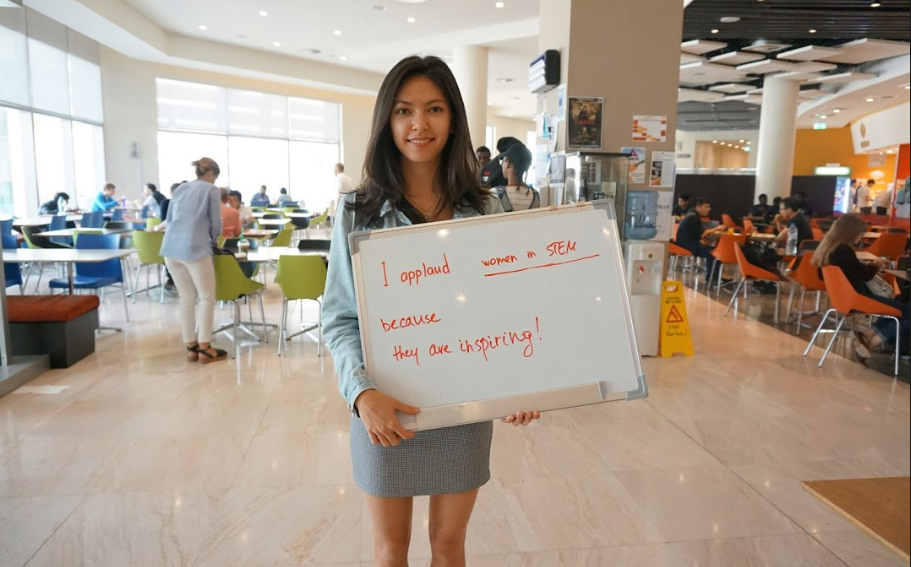 I applaud women in STEM
because
they are inspiring!